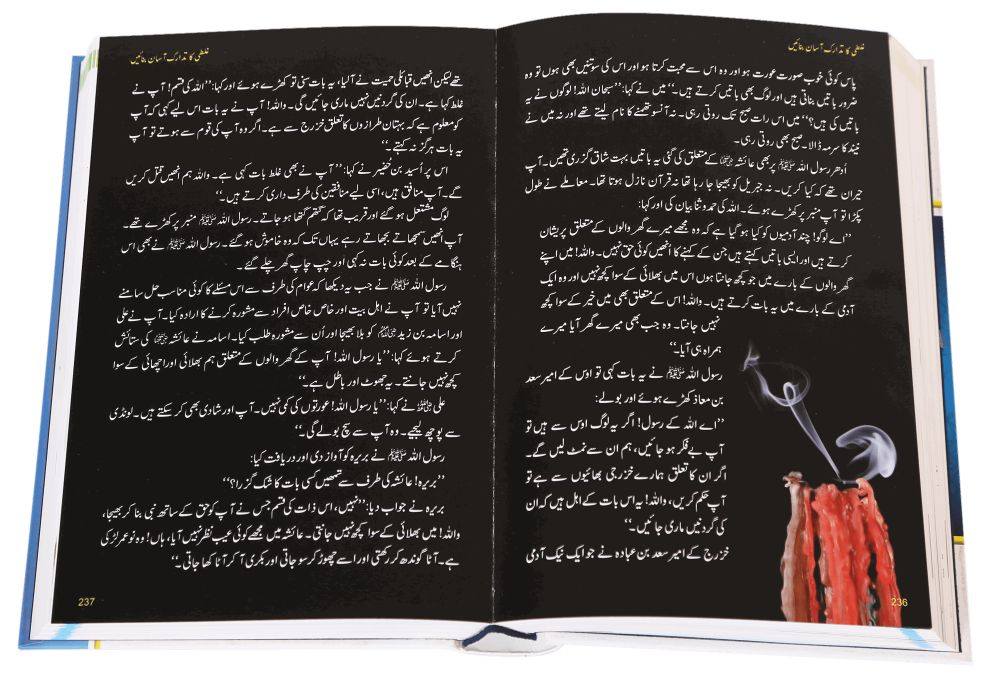 غلطی کا تدارک آسان بنائیں
پاس کوئی خوب صورت عورت ہو اور وہ اس سے محبت کرتا ہو اور اس کی سوتنیں بھی ہوں تو وہ
ضرور باتیں بناتی ہیں اور لوگ بھی باتیں کرتے ہیں۔‘‘ میں نے کہا: ’’سبحان اللہ! لوگوں نے یہ
باتیں کی ہیں؟‘‘ میں اس رات صبح تک روتی رہی۔ نہ آنسو تھمنے کا نام لیتے تھے اور نہ میں نے
نیند کا سرمہ ڈالا۔ صبح بھی روتی رہی۔
اُدھر رسول اللہ ﷺ پر بھی عائشہ رضی اللہ عنہا کے متعلق کی گئی یہ باتیں بہت شاق گزری تھیں۔ آپ
حیران تھے کہ کیا کریں۔ نہ جبریل کو بھیجا جا رہا تھا نہ قرآن نازل ہوتا تھا۔ معاملے نے طول
پکڑا تو آپ منبر پر کھڑے ہوئے۔ اللہ کی حمد و ثنا بیان کی اور کہا:
’’اے لوگو! چند آدمیوں کو کیا ہو گیا ہے کہ وہ مجھے میرے گھر والوں کے متعلق پریشان
کرتے ہیں اور ایسی باتیں کہتے ہیں جن کے کہنے کا انھیں کوئی حق نہیں۔ واللہ! میں اپنے
گھر والوں کے بارے میں جو کچھ جانتا ہوں اس میں بھلائی کے سوا کچھ نہیں اور وہ ایک
آدمی کے بارے میں یہ بات کرتے ہیں۔ واللہ! اس کے متعلق بھی میں خیر کے سوا کچھ
نہیں جانتا۔ وہ جب بھی میرے گھر آیا میرے
ہمراہ ہی آیا۔‘‘
رسول اللہ ﷺ نے یہ بات کہی تو اوس کے امیر سعد
بن معاذ کھڑے ہوئے اور بولے:
’’اے اللہ کے رسول! اگر یہ لوگ اوس سے ہیں تو
آپ بے فکر ہو جائیں، ہم ان سے نمٹ لیں گے۔
اگر ان کا تعلق ہمارے خزرجی بھائیوں سے ہے تو
آپ حکم کریں، واللہ! یہ اس بات کے اہل ہیں کہ ان
کی گردنیں ماری جائیں۔‘‘
خزرج کے امیر سعد بن عبادہ نے جو ایک نیک آدمی
236
غلطی کا تدارک آسان بنائیں
تھے لیکن انھیں قبائلی حمیت نے آ لیا، یہ بات سنی تو کھڑے ہوئے اور کہا: ’’اللہ کی قسم! آپ نے
غلط کہا ہے۔ ان کی گردنیں نہیں ماری جائیں گی۔ واللہ! آپ نے یہ بات اس لیے کہی کہ آپ
کو معلوم ہے کہ بہتان طرازوں کا تعلق خزرج سے ہے۔ اگر وہ آپ کی قوم سے ہوتے تو آپ
یہ بات ہرگز نہ کہتے۔‘‘
اس پر اُسید بن حُضیر نے کہا: ’’آپ نے بھی غلط بات کہی ہے۔ واللہ ہم انھیں قتل کریں
گے۔ آپ منافق ہیں، اسی لیے منافقین کی طرف داری کرتے ہیں۔‘‘
لوگ مشتعل ہو گئے اور قریب تھا کہ گتھم گتھا ہو جاتے۔ رسول اللہ ﷺ منبر پر کھڑے تھے۔
آپ انھیں سمجھاتے بجھاتے رہے یہاں تک کہ وہ خاموش ہو گئے۔ رسول اللہ ﷺ نے بھی اس
ہنگامے کے بعد کوئی بات نہ کہی اور چپ چاپ گھر چلے گئے۔
رسول اللہ ﷺ نے جب یہ دیکھا کہ عوام کی طرف سے اس مسئلے کا کوئی مناسب حل سامنے
نہیں آیا تو آپ نے اہل بیت اور خاص خاص افراد سے مشورہ کرنے کا ارادہ کیا۔ آپ نے علی
اور اسامہ بن زید رضی اللہ عنہم کو بلا بھیجا اور اُن سے مشورہ طلب کیا۔ اسامہ نے عائشہ رضی اللہ عنہا کی ستائش
کرتے ہوئے کہا: ’’یا رسول اللہ! آپ کے گھر والوں کے متعلق ہم بھلائی اور اچھائی کے سوا
کچھ نہیں جانتے۔ یہ جھوٹ اور باطل ہے۔‘‘
علی رضی اللہ عنہ نے کہا: ’’یا رسول اللہ! عورتوں کی کمی نہیں۔ آپ اور شادی بھی کر سکتے ہیں۔ لونڈی
سے پوچھ لیجیے۔ وہ آپ سے سچ بولے گی۔‘‘
رسول اللہ ﷺ نے بریرہ کو آواز دی اور دریافت کیا:
’’بریرہ! عائشہ کی طرف سے تمھیں کسی بات کا شک گزرا؟‘‘
بریرہ نے جواب دیا: ’’نہیں، اس ذات کی قسم جس نے آپ کو حق کے ساتھ نبی بنا کر بھیجا،
واللہ! میں بھلائی کے سوا کچھ نہیں جانتی۔ عائشہ میں مجھے کوئی عیب نظر نہیں آیا، ہاں! وہ نوعمر لڑکی
ہے۔ آٹا گوندھ کر رکھتی اور اسے چھوڑ کر سو جاتی اور بکری آ کر آٹا کھا جاتی۔‘‘
237